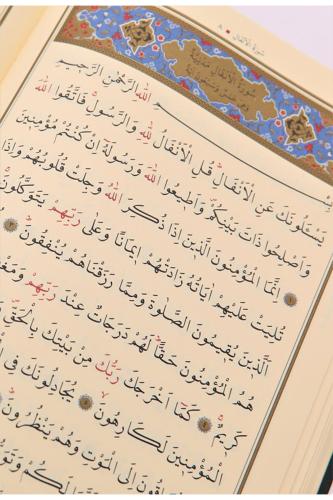 سورة الأنفال
سورة الأنفال مدنية
بسم الله الرحمن الرحيم
يَسْـَٔلُونَكَ عَنِ الْاَنْفَالِ قُلِ الْاَنْفَالُ لِلّٰهِ وَالرَّسُولِ فَاتَّقُوا اللّٰهَ
وَاَصْلِحُوا ذَاتَ بَيْنِكُمْ وَاَطِيعُوا اللّٰهَ وَرَسُولَهُ اِنْ كُنْتُمْ مُؤْمِنِينَ
١ اِنَّمَا الْمُؤْمِنُونَ الَّذِينَ اِذَا ذُكِرَ اللّٰهُ وَجِلَتْ قُلُوبُهُمْ وَاِذَا
تُلِيَتْ عَلَيْهِمْ اٰيَاتُهُ زَادَتْهُمْ اِيمَانًا وَعَلٰى رَبِّهِمْ يَتَوَكَّلُونَ ٢
اَلَّذِينَ يُقِيمُونَ الصَّلٰوةَ وَمِمَّا رَزَقْنَاهُمْ يُنْفِقُونَ ٣
هُمُ الْمُؤْمِنُونَ حَقًّا لَهُمْ دَرَجَاتٌ عِنْدَ رَبِّهِمْ
كَرِيمٌ ٤ كَمَا اَخْرَجَكَ رَبُّكَ مِنْ بَيْتِكَ بِالْحَقِّ
الْمُؤْمِنِينَ لَكَارِهُونَ ٥ يُجَادِلُونَكَ فِي
اِلَى الْمَوْتِ وَهُمْ يَنْظُرُونَ